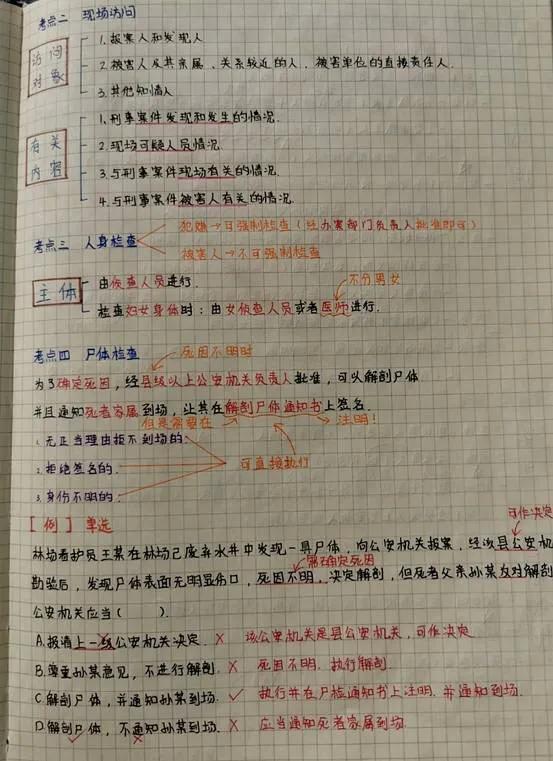 考点二 现场访问
访问对象
1.报案人和发现人
2.被害人及其亲属、关系较近的人、被害单位的直接责任人.
3.其他知情人
有关内容
1.刑事案件发现和发生的情况.
2.现场可疑人员情况.
3.与刑事案件现场有关的情况.
4.与刑事案件被害人有关的情况.
犯嫌→可强制检查(经办案部门负责人批准即可)
考点三 人身检查
被害人→不可强制检查
主体
由侦查人员进行.
不分男女
检查妇女身体时:由女侦查人员或者医师进行.
考点四 尸体检查
死因不明时
为了确定死因,经县级以上公安机关负责人批准,可以解剖尸体
并且通知死者家属到场,让其在解剖尸体通知书上签名.
但是需要在
注明!
1.无正当理由拒不到场的.
2.拒绝签名的.
可直接执行
3.身份不明的.
[例] 单选
可作决定
林场看护员王某在林场已废弃水井中发现一具尸体,向公安机关报案,经该县公安机
需确定死因
勘验后,发现尸体表面无明显伤口,死因不明,决定解剖,但死者父亲孙某反对解剖
公安机关应当( ).
A.报请上一级公安机关决定. × 该公安机关是县公安机关,可作决定
B.尊重孙某意见,不进行解剖. × 死因不明.执行解剖.
C.解剖尸体,并通知孙某到场. ✓ 执行并在尸检通知书上注明.并通知到场.
D.解剖尸体,不通知孙某到场. × 应当通知死者家属到场.